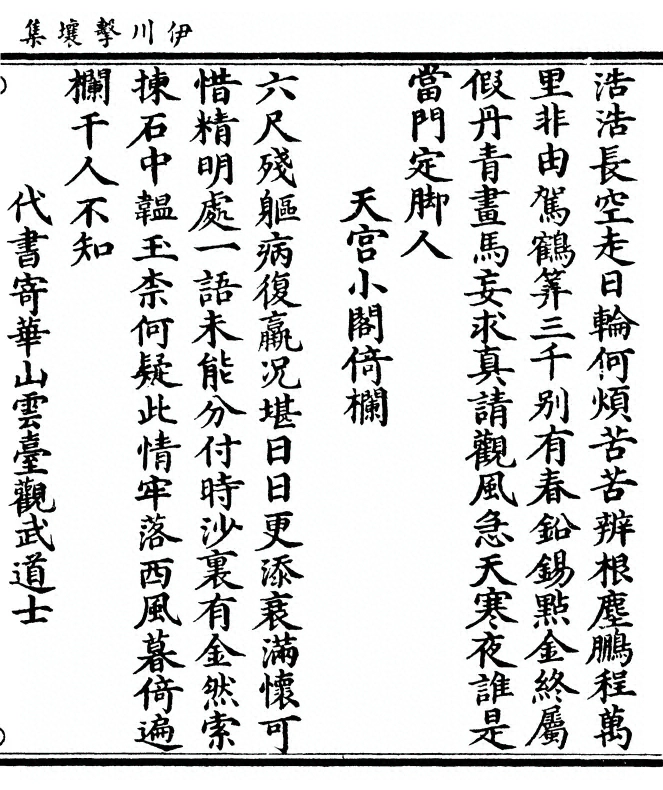 伊川擊壤集
浩浩長空走日輪何煩苦苦辨根塵鵬程萬
里非由駕鶴筭三千別有春鉛錫點金終屬
假丹青畫馬妄求真請觀風急天寒夜誰是
當門定脚人
天宫小閣倚欄
六尺殘軀病復羸況堪日日更添衰滿懷可
惜精明處一語未能分付時沙裏有金然索
揀石中韞玉柰何疑此情牢落西風暮倚遍
欄干人不知
代書寄華山雲臺觀武道士